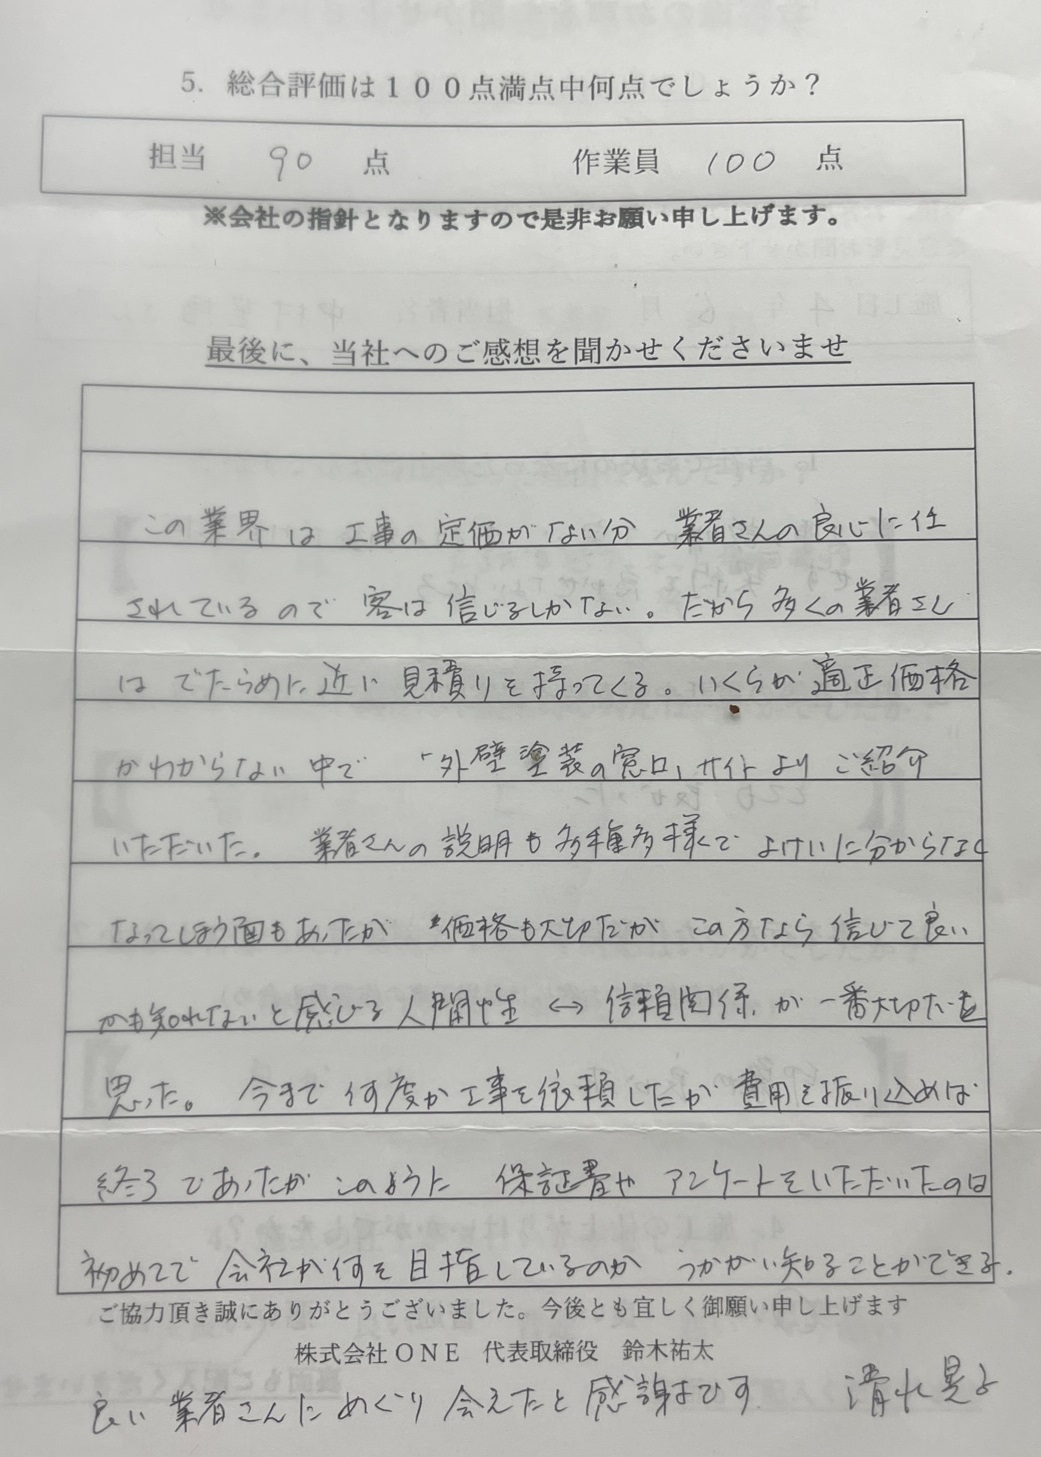 5. 総合評価は１００点満点中何点でしょうか？
担当 90 点 作業員 100 点
※会社の指針となりますので是非お願い申し上げます。
最後に、当社へのご感想を聞かせくださいませ
この業界は工事の定価がない分 業者さんの良心に任
されているので 客は信じるしかない。だから多くの業者さん
はでたらめに近い見積りを持ってくる。いくらが適正価格
かわからない中で 「外壁塗装の窓口」サイトより ご紹介
いただいた。 業者さんの説明も多種多様で よけいに分からなく
なってしまう面もあったが 価格も大切だが この方なら信じて良い
かも知れないと感じる人間性 ↔ 信頼関係が一番大切だと
思った。 今まで何度か工事を依頼したが 費用を振り込めば
終了であったが このように 保証書や アンケートをいただいたのは
初めてで 会社が何を目指しているのか うかがい知ることができる.
ご協力頂き誠にありがとうございました。今後とも宜しく御願い申し上げます
株式会社ＯＮＥ 代表取締役 鈴木祐太
良い業者さんにめぐり会えたと感謝です 清水晃子